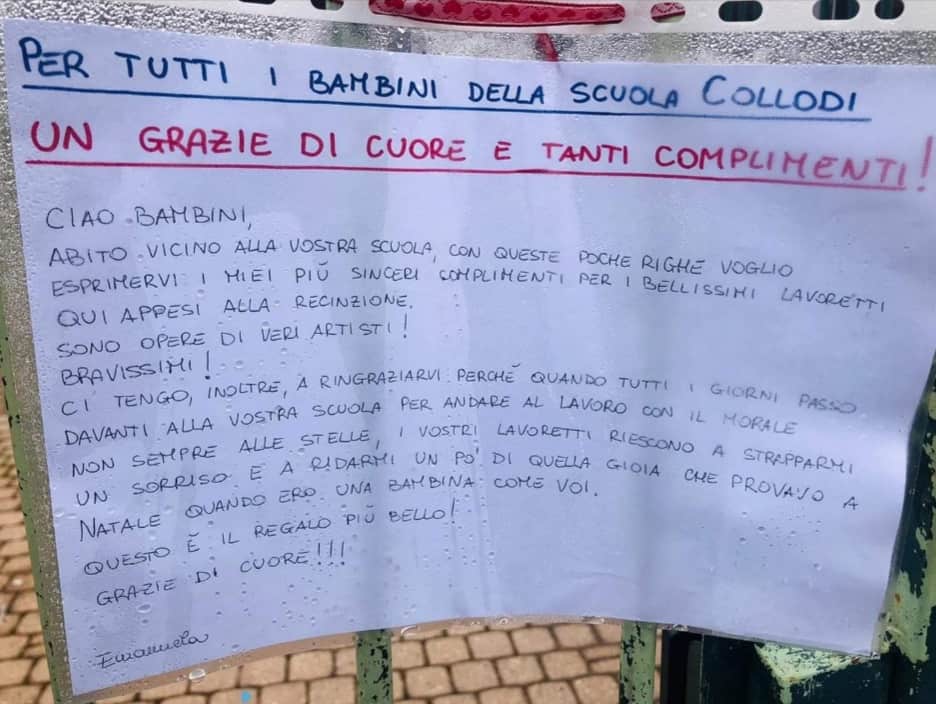 PER TUTTI I BAMBINI DELLA SCUOLA COLLODI
UN GRAZIE DI CUORE E TANTI COMPLIMENTI!
CIAO BAMBINI,
ABITO VICINO ALLA VOSTRA SCUOLA, CON QUESTE POCHE RIGHE VOGLIO
ESPRIMERVI I MIEI PIÙ SINCERI COMPLIMENTI PER I BELLISSIMI LAVORETTI
QUI APPESI ALLA RECINZIONE.
SONO OPERE DI VERI ARTISTI!
BRAVISSIMI!
CI TENGO, INOLTRE, A RINGRAZIARVI PERCHÈ QUANDO TUTTI I GIORNI PASSO
DAVANTI ALLA VOSTRA SCUOLA PER ANDARE AL LAVORO CON IL MORALE
NON SEMPRE ALLE STELLE, I VOSTRI LAVORETTI RIESCONO A STRAPPARMI
UN SORRISO E A RIDARMI UN PO' DI QUELLA GIOIA CHE PROVAVO A
NATALE QUANDO ERO UNA BAMBINA COME VOI.
QUESTO È IL REGALO PIÙ BELLO!
GRAZIE DI CUORE!!!
Emanuela